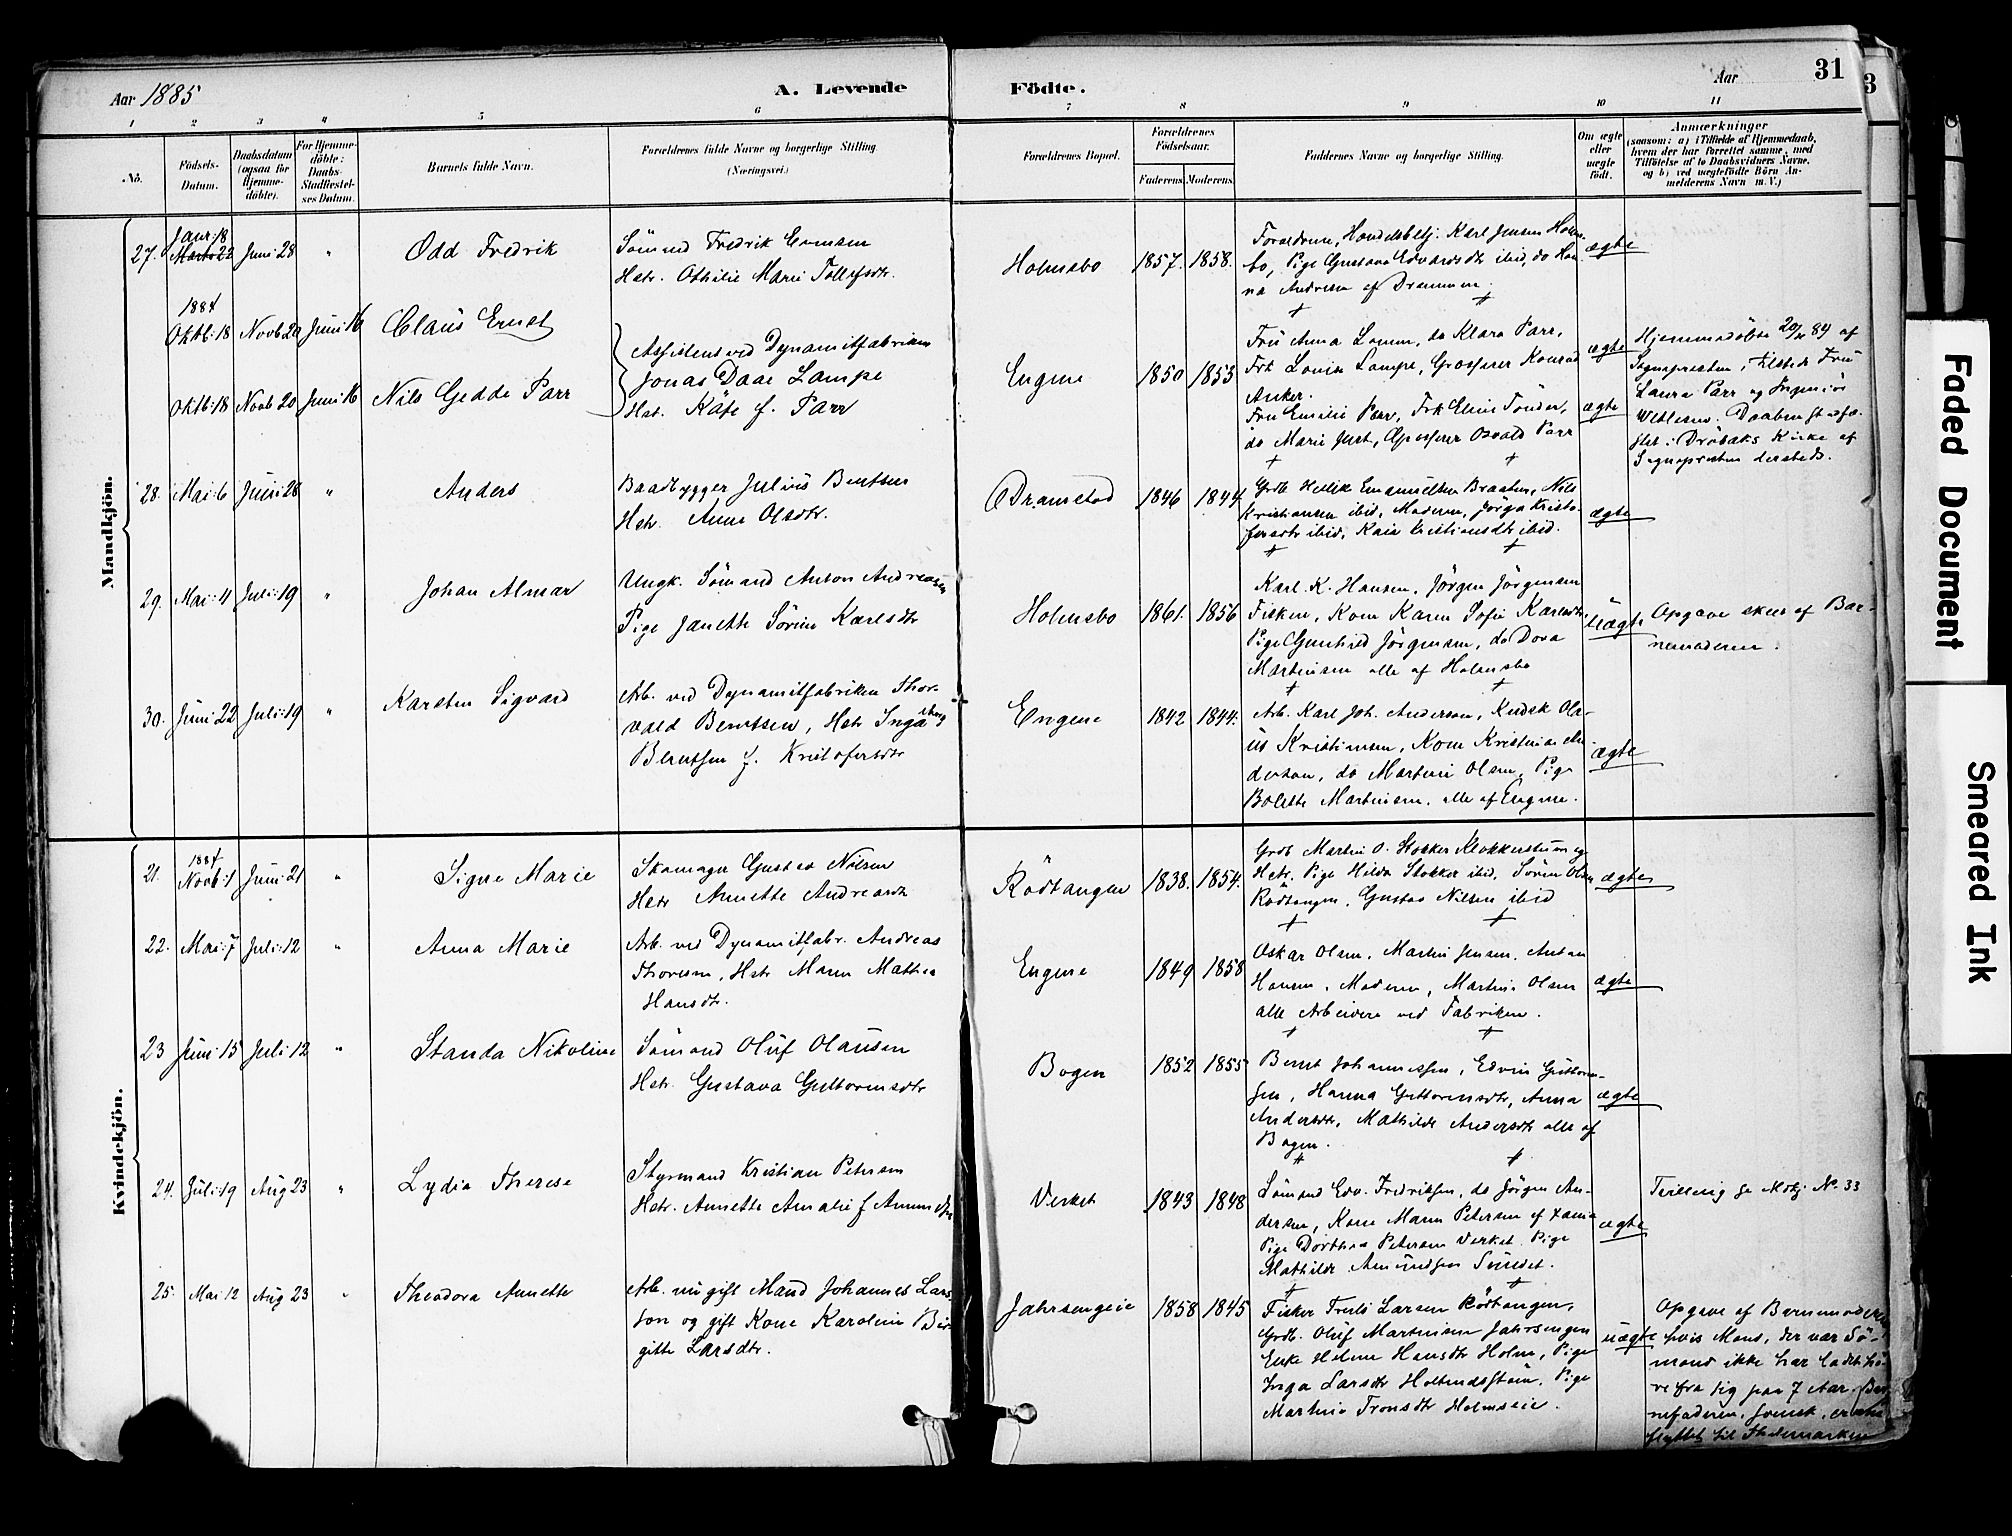 Aar 1885
A. Levende
Födte.
Aar
31
3
1
2
3
4
5
6
7
8
9
10
11
No.
Födsels-
Datum.
Daabsdatum
(ogsaa for
Hjemme-
döbte).
For Hjemme-
döbte:
Daabs-
Stadfæstel-
ses Datum.
Barnets fulde Navn.
Forældrenes fulde Navne og borgerlige Stilling
(Næringsvei.)
Forældrenes Bopæl.
Forældrenes
Födselsaar.
Faderens
Moderens
Faddernes Navne og borgerlige Stilling.
Om ægte
eller
uægte
födt.
Anmærkninger
(saasom: a) i Tilfælde af Hjemmedaab,
hvem der har forrettet samme, med
Tilföielse af to Daabsvidners Navne,
og b) ved uægtefödte Börn An-
melderens Navn m. V.)
Mandkjön.
27. Janr: 18
Marts 22
Juni 28 " Odd Fredrik
Sömand Fredrik Evensen
Hstr. Othilie Marie Tollefsdtr.
Holmsbo 1857. 1858.
Forældrene, Handelsbetj. Karl Jensen Holms-
bo, Pige Gustava Edvardsdtr ibid, do Han-
na Andresen af Drammen.
ægte
1884
Oktb: 18 Novb 20 Juni 16 Claus Ernst
Oktb: 18 Novb 20 Juni 16 Nils Gedde Parr
Assistent ved Dynamitfabriken
Jonas Daae Lampe
Hst. Käte f. Parr
Engene 1850 1853
Fru Anna Lamm, do Klara Parr,
Frk Louise Lampe, Grosserer Konrad
Anker.
Fru Emilie Parr, Frk Elise Tönder,
do Marie Just, Grosserer Osvald Parr
ægte
ægte
Hjemmedöbte 20/11 84 af
Sognepresten, tilstede Fru
Laura Parr og Ingeniör
Daaben stadfæ-
stet i Dröbaks Kirke af
Sognepresten dersteds.
28. Mai: 6 Juni: 28 " Anders
Baadbygger Julius Berntsen
Hstr. Anne Olsdtr.
Dramstad 1846 1844
Grdb Hellik Emanuelsen Braaten, Nils
Kristiansen ibid, Moderen, Jörga Kristo-
fersdtr ibid, Kaia Kristiansdtr ibid.
ægte
29. Mai: 11 Juli: 19 " Johan Almar
Ungk. Sömand Anton Andreasen
Pige Janette Sörine Karlsdtr
Holmsbo 1861. 1856
Karl K. Hansen, Jörgen Jörgensen
Fisker, Kone Karen Sofie Karlsdtr
Pige Gunhild Jörgensen, do Dora
Martinsen alle af Holmsbo
uægte
Opgave skeer af Bar-
nemoderen.
30. Juni 22 Juli: 19 " Karsten Sigvard
Arb. ved Dynamitfabriken Thor-
vald Berntsen, Hstr Ingeborg
Berntsen f. Kristofersdtr
Engene 1842 1844.
Arb. Karl Joh. Andersen, Kudsk Ola-
us Kristiansen, Kone Kristine An-
dersen, do Martine Olsen, Pige
Bolette Martinsen, alle af Engene.
ægte
Kvindekjön.
21. 1884
Novb: 1 Juni: 21 " Signe Marie
Skomager Gustav Nilsen
Hstr Annette Andreasdtr
Rödtangen 1838. 1854.
Grdb Martin O. Stokker Klokkerstuen og
Hstr. Pige Hilda Stokker ibid, Sören Olsen
Rödtangen, Gustav Nilsen ibid
ægte
22. Mai: 7 Juli: 12 " Anna Marie
Arb. ved Dynamitfabr. Andreas
Thoresen, Hstr Maren Mathea
Hansdtr.
Engene 1849 1858
Oskar Olsen, Martin Jensen, Anton
Hansen, Moderen, Martine Olsen
alle Arbeidere ved Fabriken.
ægte
23 Juni: 15 Juli: 12 " Standa Nikoline
Sömand Oluf Olausen
Hstr. Gustava Guttormsdtr
Bogen 1852 1855
Bernt Johannessen, Edvin Guttorm-
sen, Hanna Guttormsdtr, Anna
Andersdtr, Mathilde Andersdtr alle af
Bogen.
ægte
24. Juli: 19 Aug 23 " Lydia Therese
Styrmand Kristian Petersen
Hstr. Annette Amalie f Amundsen
Verket 1843 1848
Sömand Edv. Fredriksen, do Jörgen An-
dersen, Kone Maren Petersen
Pige Dorthea Petersen Verket. Pige
Mathilde Amundsen Sundet.
ægte
Tvilling se Mdkj No. 33
25. Mai: 12 Aug 23 " Theodora Annette
Arb. ugift Mand Johannes Lars-
son og gift Kone Karoline Bir-
gitte Larsdtr.
Jahrsengeie 1858 1845
Fisker Truls Larsen Rödtangen,
Grdb. Oluf Martinsen Jahrsengen
Enke Helene Hansdtr Holm, Pige
Inga Larsdtr Pige
Martine Tronsdtr Holmseie.
uægte
Opgave af Barnemoderen
hvis Mand, der var Sö-
mand ikke har ladet hö-
re fra sig paa 7 Aar. Bar-
nefaderen, svensk, er
flyttet til Hedemarken
Faded Document
Smeared Ink